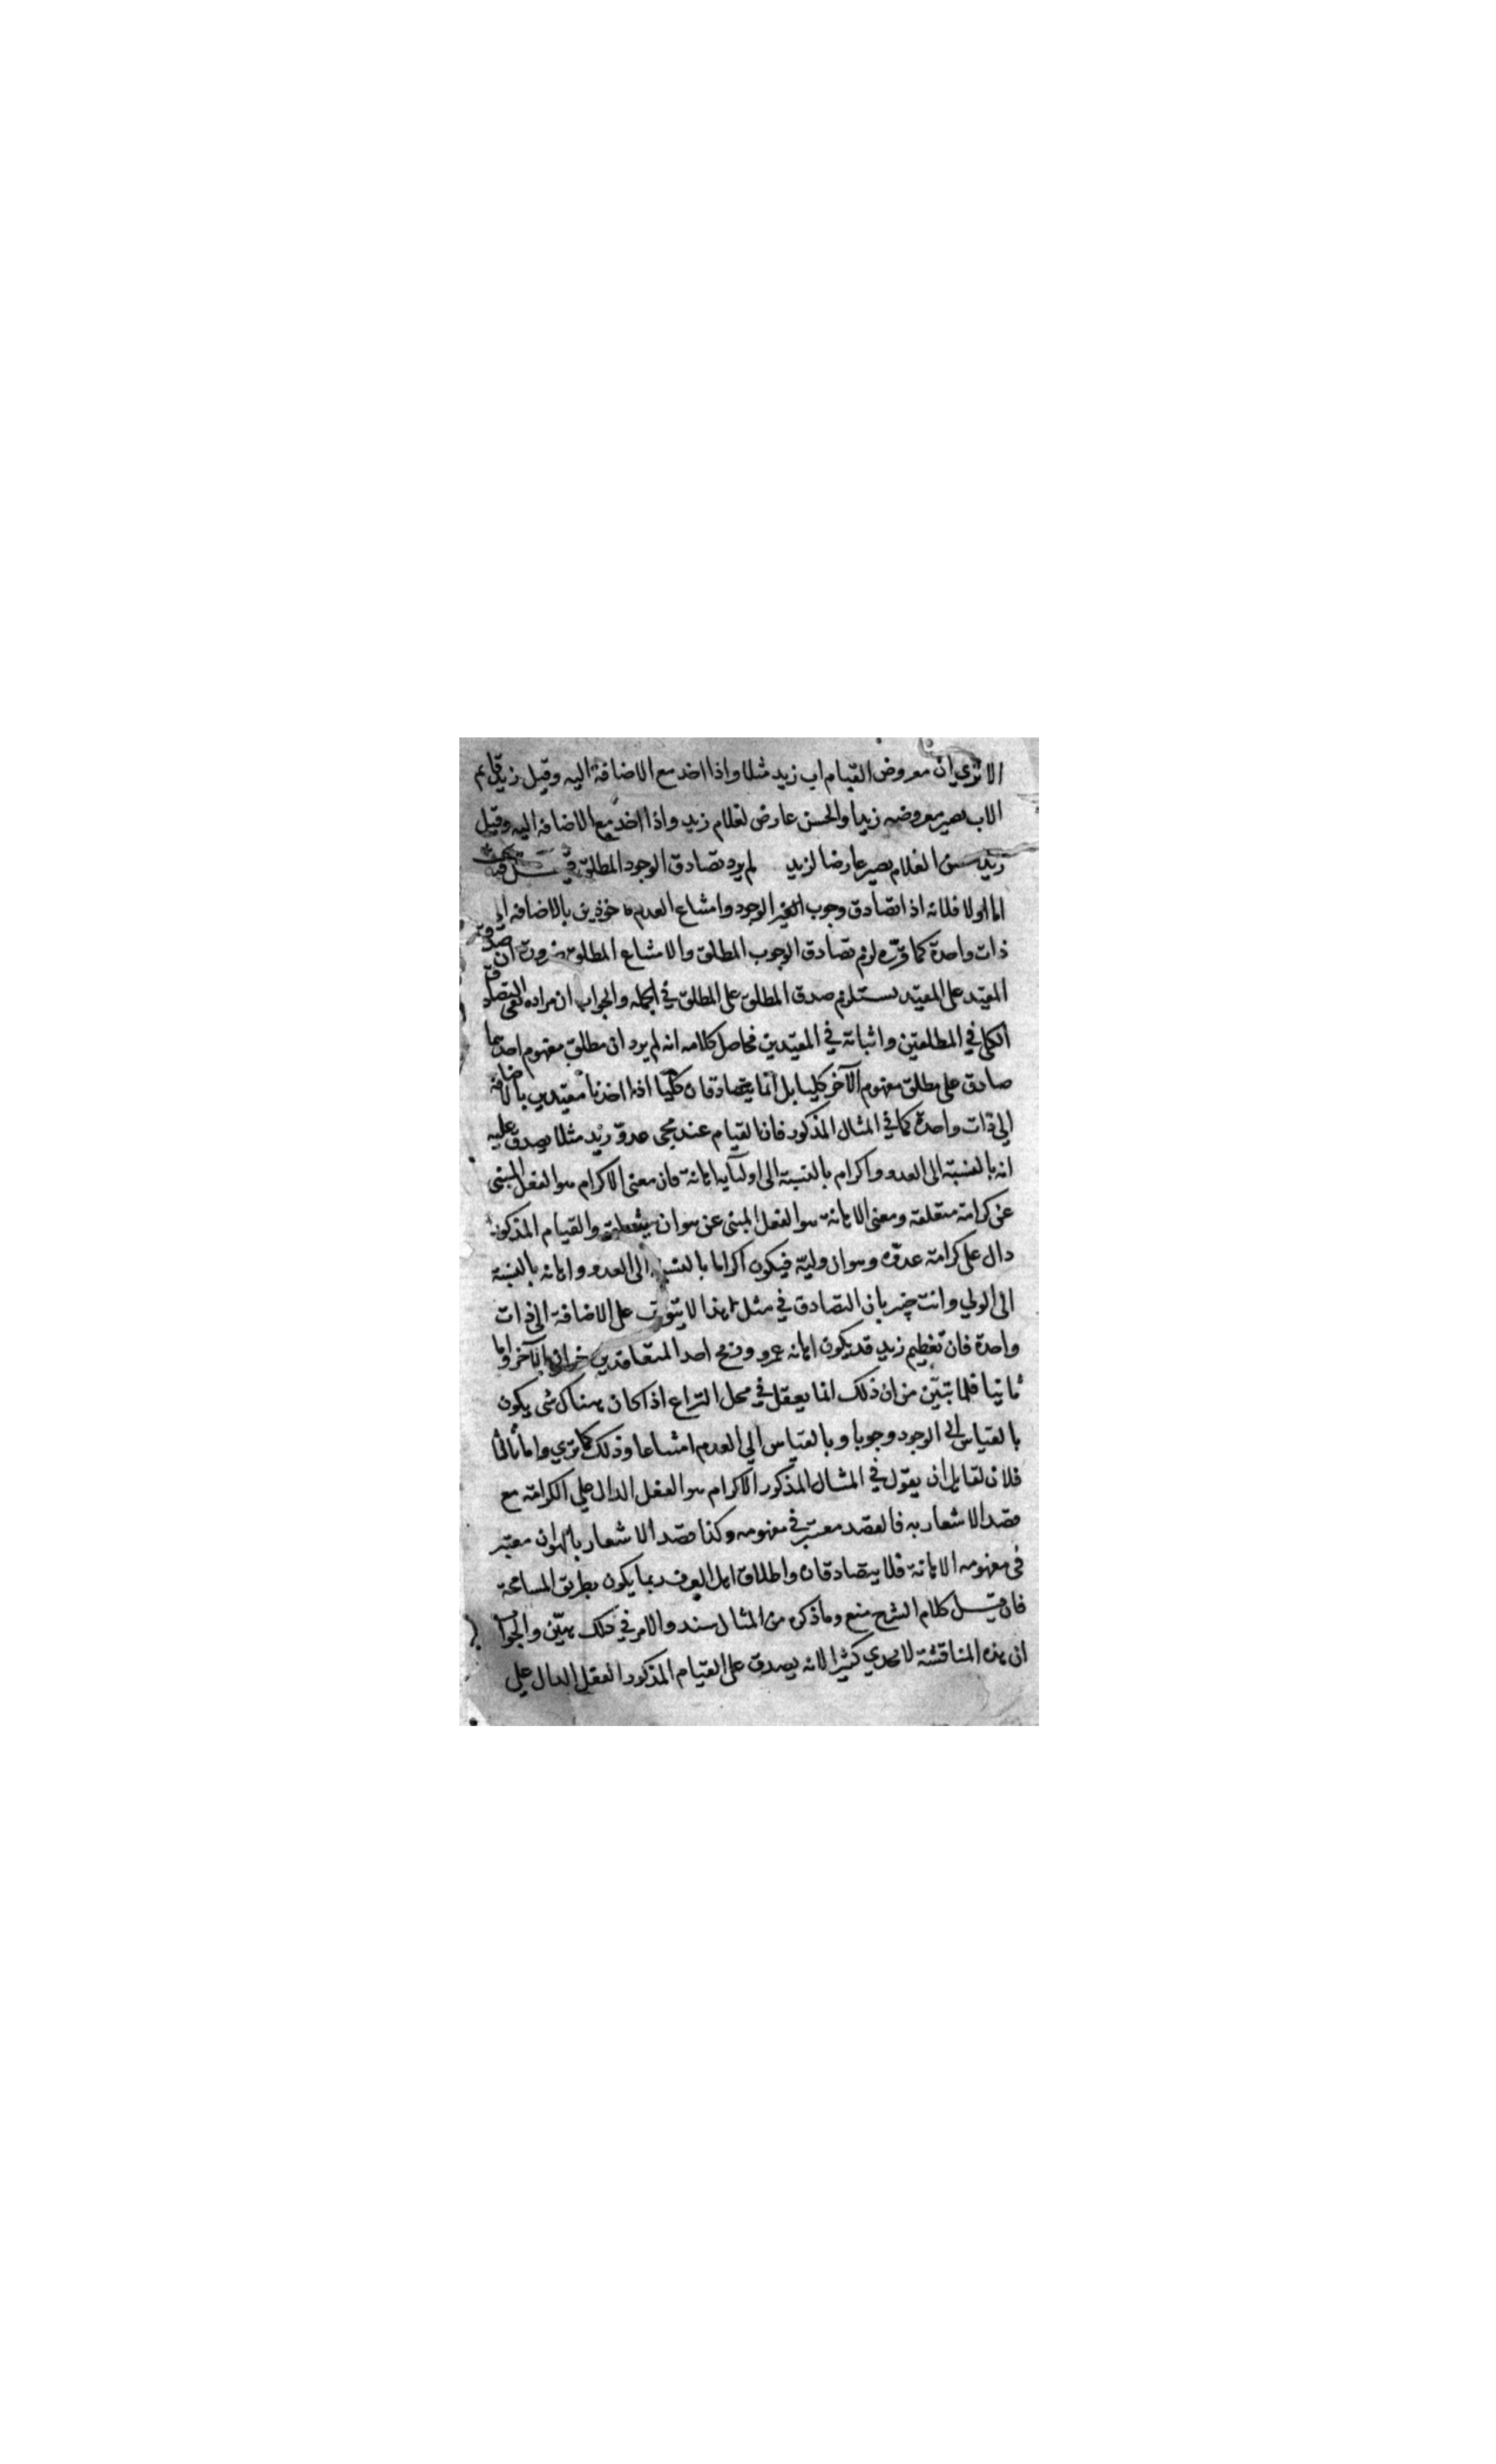 الا تري ان معروض القيام اب زيد مثلا واذا اخذ مع الاضافة اليه وقيل زيد قايم
الاب يصير معروضه زيدا والحسن عارض لغلام زيد واذا اخذ مع الاضافة اليه وقيل
زيد حسن الغلام يصير عارضا لزيد لم يرد تصادق الوجود المطلق
اما اولا فلانه اذا تصادق وجوب الوجود وامتناع العدم ماخوذين بالاضافة
ذات واحدة كما قرره لزم تصادق الوجوب المطلق والامتناع المطلق ضرورة ان صدق
المقيد على المقيد يستلزم صدق المطلق على المطلق في الجملة والجواب ان مراده نفى التصادق
الكلي في المطلقين واثباته في المقيدين فحاصل كلامه انه لم يرد ان مطلق مفهوم احدهما
صادق على مطلق مفهوم الآخر كليا بل انما يتصادقان كليا اذا اخذنا مقيدين بالاضافة
الي ذات واحدة كما في المثال المذكور فان القيام عند مجى عدو زيد مثلا يصدق عليه
انه بالنسبة الى العدو اكرام بالنسبة الى اوليائه اهانة فان معنى الاكرام هو الفعل المبنى
عن كرامة متعلقه ومعنى الاهانة هو الفعل المبنى عن هوان متعلقه والقيام المذكور
دال على كرامة عدوه وهوان وليه فيكون اكراما بالنسبة الى العدو واهانه بالنسبة
الى الولي وانت خبير بان التصادق في مثل هذا لا يتوقف على الاضافة الى ذات
واحدة فان تعظيم زيد قد يكون اهانه عمرو وربح احد المتعاقدين خسران الآخر واما
ثانيا فلما تبين من ان ذلك انما يعقل في محل النزاع اذا كان هناك شى يكون
بالقياس الى الوجود وجوبا وبالقياس الي العدم امتناعا وذلك كما تري واما ثالثا
فلان لقايل ان يقول في المثال المذكور الاكرام هو الفعل الدال علي الكرامة مع
قصد الاشعار به فالقصد معتبر في مفهومه وكذا قصد الاشعار بالهوان معتبر
في مفهومه الاهانة فلا يتصادقان واطلاق اهل العرف ربما يكون بطريق المسامحة
فان قيل كلام الشرح منع وما ذكره من المثال سند والامر في ذلك هين والجواب
ان هذه المناقشة لا تجدي كثيرا لانه يصدق على القيام المذكور الفعل الدال علي